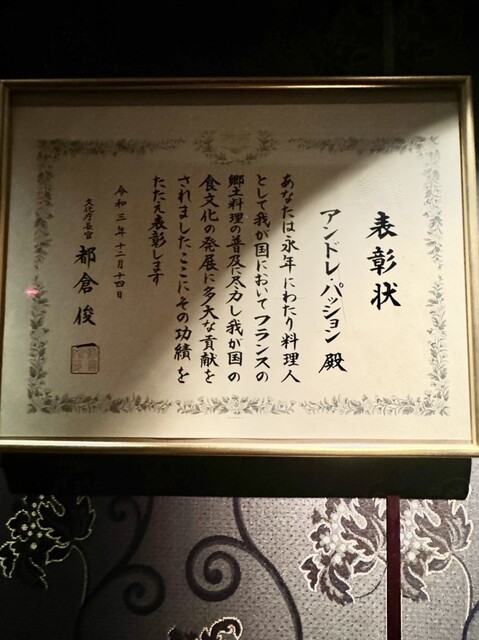 表彰状
アンドレ・パッション 殿
あなたは永年にわたり料理人
として我が国においてフランスの
郷土料理の普及に尽力し我が国の
食文化の発展に多大な貢献を
されましたここにその功績を
たたえ表彰します
令和三年十二月十四日
文化庁長官 都倉俊一